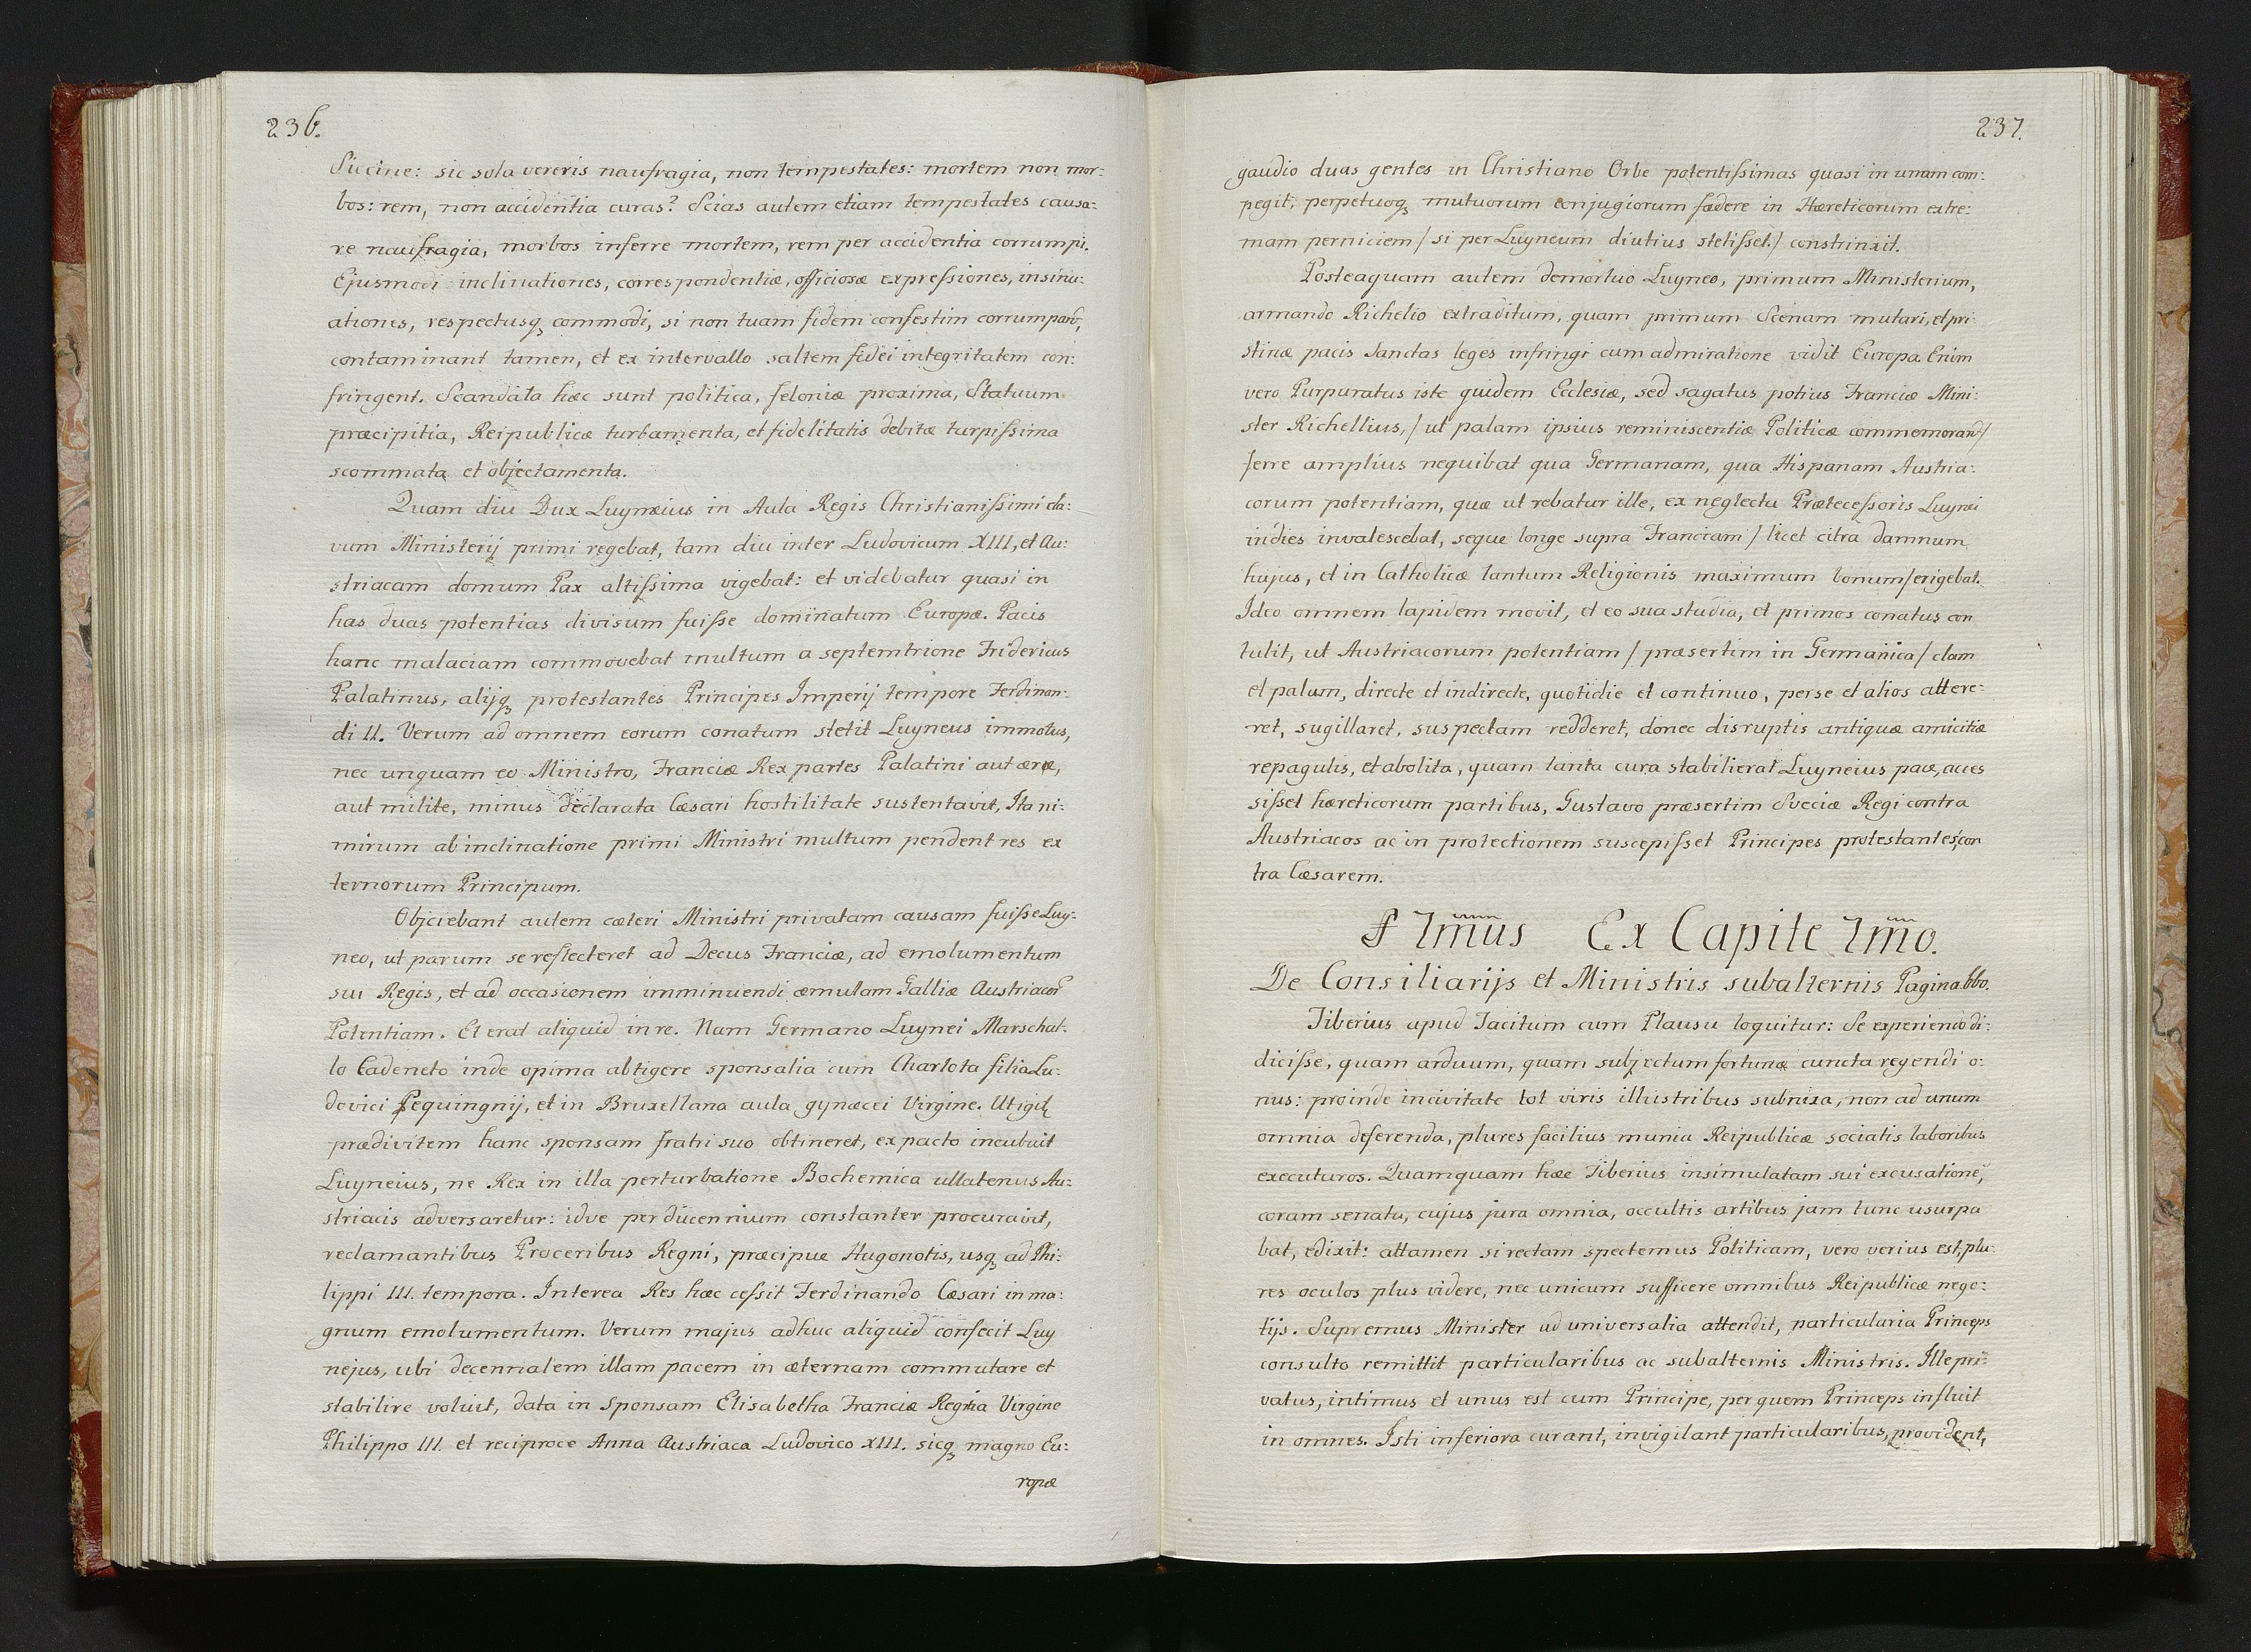 236.
Siccine: sic sola vereris naufragia, non tempestates: mortem non mor:
bos: rem, non accidentia curas? Scias autem etiam tempestates causa:
re naufragia, morbos inferre mortem, rem per accidentia corrumpi.
Ejusmodi inclinationes, correspondentiæ, officiosæ expressiones, insinu:
ationes, respectusq₃ commodi, si non tuam fidem confestim
contaminant tamen, et ex intervallo saltem fidei integritatem con:
fringent. Scandala hæc sunt politica, feloniæ proxima, Statuum
præcipitia, Reipublicæ turbamenta, et fidelitatis debitæ turpissima
scommata et objectamenta.
Quam diu Dux Luynæius in Aula Regis Christianissimi cla:
vum Ministerij primi regebat, tam diu inter Ludovicum XIII, et Au:
striacam domum Pax altissima vigebat: et videbatur quasi in
has duas potentias divisum fuisse dominatum Europæ. Pacis
hanc malaciam commovebat multum a septemtrione Fridericus
Palatinus, alijq₃ protestantes Principes Imperij tempore Ferdinan:
di II. Verum ad omnem eorum conatum stetit Luyneus immotus,
nec unquam eo Ministro, Franciæ Rex partes Palatini aut ære,
aut milite, minus declarata Cæsari hostilitate sustentavit, Ita ni:
mirum ab inclinatione primi Ministri multum pendent res ex
ternorum Principum.
Objciebant autem cæteri Ministri privatam causam fuisse Luy:
neo, ut parum se reflecteret ad Decus Franciæ, ad emolumentum
sui Regis, et ad occasionem imminuendi æmulam Galliæ Austriacor̃
Potentiam. Et erat aliquid in re. Nam Germano Luynei Marschal:
lo Cadeneto inde opima abtigere sponsalia cum Charlota filia Lu:
dovici Pequingnij, et in Bruxellana aula gynæcei Virgine. Ut
prædivitem hanc sponsam fratri suo obtineret, ex pacto incubuit
Luyneius, ne Rex in illa perturbatione Bochemica ullatenus Au:
striacis adversaretur: idve per ducennium constanter procuravit,
reclamantibus Proceribus Regni, præcipue Hugonotis, usq₃ ad Phi:
lippi III. tempora. Interea Res hæc cessit Ferdinando Cæsari in ma:
gnum emolumentum. Verum majus adhuc aliquid confecit Luy
nejus, ubi decennalem illam pacem in æternam commutare et
stabilire voluit, data in Sponsam Elisabetha Franciæ Regnia Virgine
Philippo III. et reciproce Anna Austriaca Ludovico XIII. sicq₃ magno Eu:
ropæ
237.
gaudio duas gentes in Christiano Orbe potentissimas quasi in unam com:
pegit, perpetuoq₃ mutuorum conjugiorum fædere in Hæreticorum extre:
mam perniciem / si per Luyneum diutius stetisset / constrinxit.
Posteaquam autem demortuo Luyneo, primum Ministerium,
armando Richelio extraditum, quam primum Scenam mutari, et pri
stinæ pacis Sanctas leges infringi cum admiratione vidit Europa. Enim
vero Purpuratus iste quidem Ecclesiæ, sed sagatus potius Franciæ Mini:
ster Richellius, / ut palam ipsius reminiscentiæ Politicæ
ferre amplius nequibat qua Germanam, qua Hispanam Austria:
corum potentiam, quæ ut rebatur ille, ex neglectu Prætecessoris Luynei
indies invalescebat, seque longe supra Franciam / licet citra damnum
hujus, et in Catholicæ tantum Religionis maximum bonum / erigebat.
Ideo omnem lapidem movit, et eo sua studia, et primos conatus con
tulit, ut Austriacorum potentiam / præsertim in Germanica / clam
et palam, directe et indirecte, quotidie et continuo, per se et alios attere:
ret, sugillaret, suspectam redderet, donec disruptis antiquæ amicitiæ
repagulis, et abolita, quam tanta cura stabilierat Luyneius pace, acces
sisset hæreticorum partibus, Gustavo præsertim Sveciæ Regi contra
Austriacos ac in protectionem suscepisset Principes protestantes, con
tra Cæsarem.
Ex Capite 7mo.
De Consiliarijs et Ministris subalternis Pagina 660.
Tiberius apud Tacitum cum Plausu loquitur: Se experiendo di:
dicisse, quam arduum, quam subjectum fortunæ cuncta regendi o:
nus: proinde in civitate tot viris illustribus subnixa, non ad unum
omnia deferenda, plures facilius munia Reipublicæ sociatis laboribus
executuros. Quamquam hæc Tiberius in simulatam sui excusationē,
coram senatu, cujus jura omnia, occultis artibus jam tunc usurpa
bat, edixit: attamen si rectam spectemus Politicam, vero verius est, plu:
res oculos plus videre, nec unicum sufficere omnibus Reipublicæ nego:
tijs. Supremus Minister ad universalia attendit, particularia Princeps
consulto remittit particularibus ac subalternis Ministris. Ille pri:
vatus, intimus et unus est cum Principe, per quem Princeps influit
in omnes. Isti inferiora curant, invigilant particularibus, provident,